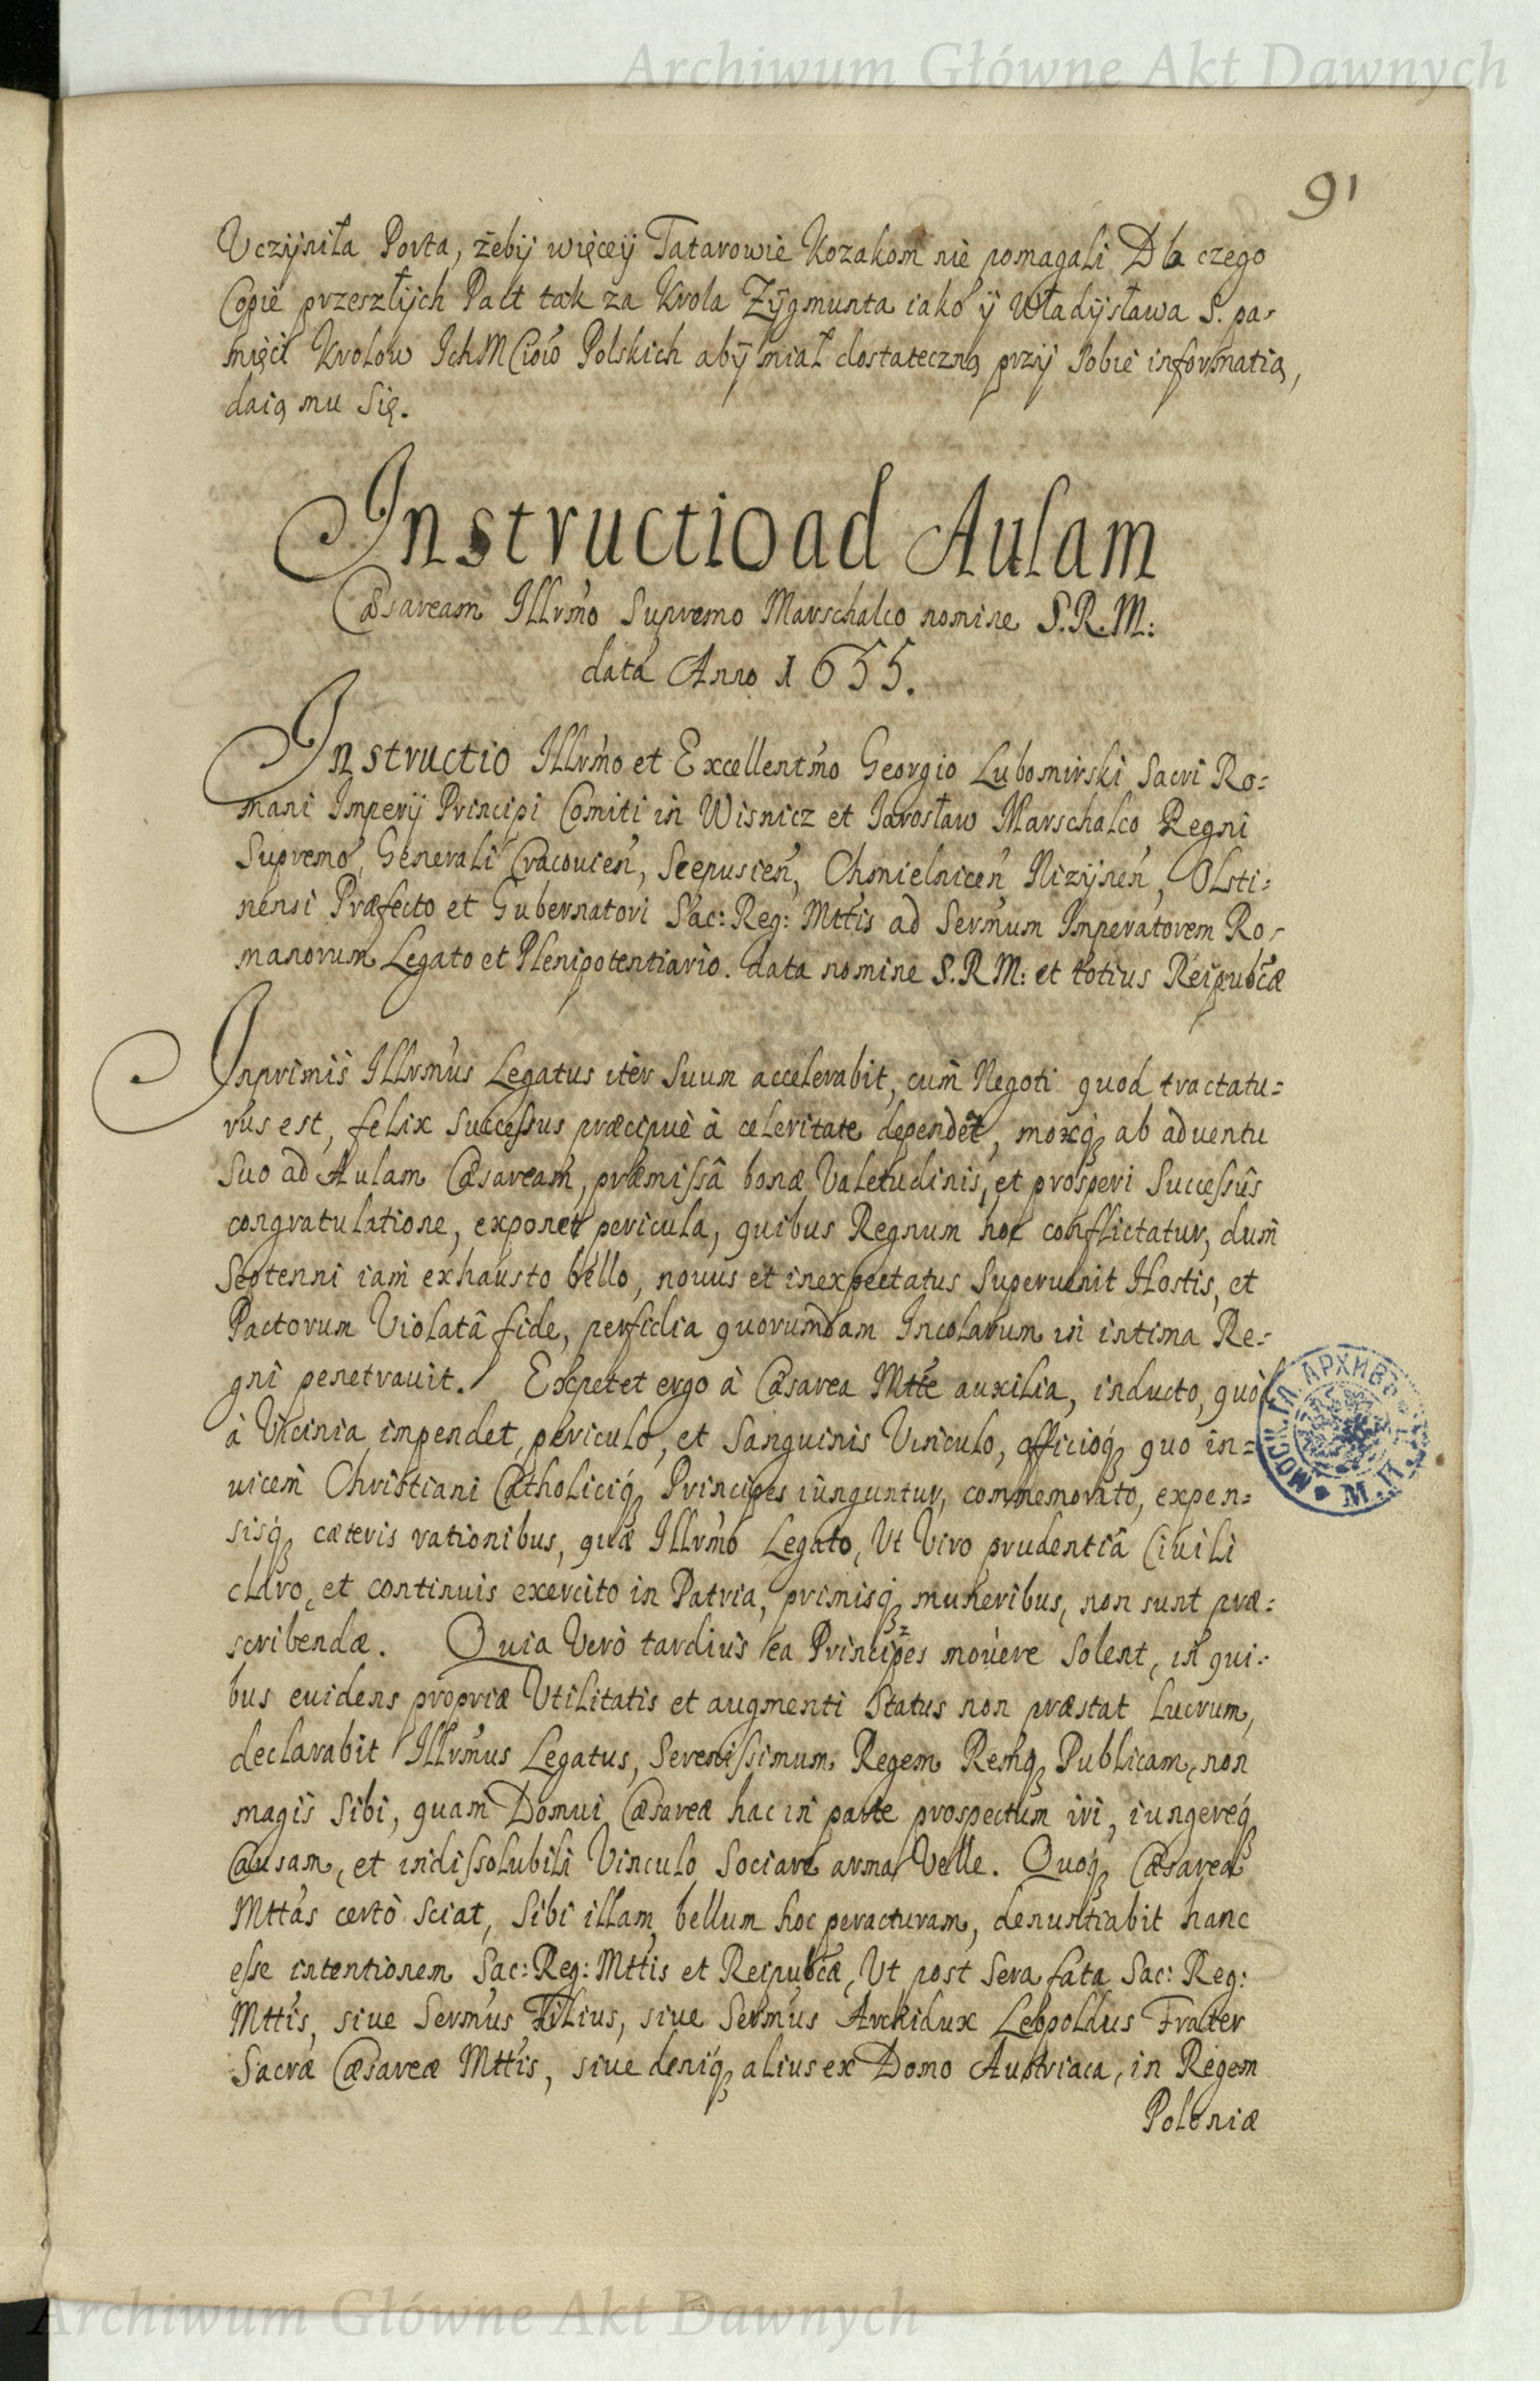 Archiwum Główne Akt Dawnych
91
Uczÿniła Porta, żebÿ więceÿ Tatarowie Kozakom nie pomagali Dla czego
Copie przeszłÿch Pact tak za Krola Zÿgmunta iako ÿ Władÿsława S. pa-
mięci Krolow IchMCiow Polskich abÿ miał dostateczną przÿ sobie informatią,
daią mu się.
Instructio ad Aulam
Cæsaream Illrmo Supremo Marschalco nomine S.R.M:
data Anno 1655.
Instructio Illrmo et Excellentmo Georgio Lubomirski Sacri Ro=
mani Imperÿ Principi Comiti in Wisnicz et Iarosław Marschalco Regni
Supremo, Generali Cracouien, Scepusien, Chmielnicen Nizÿnen, Olsti=
nensi Præfecto et Gubernatori Sac: Reg: Mttis ad Sermum Imperatorem Ro-
manorum Legato et Plenipotentiario. data nomine S.R.M: et totius Reipubcæ
Inprimis Illrmus Legatus iter suum accelerabit, cum Negoti quod tractatu=
rus est, felix Successus præcipuè à celeritate dependet, moxq̃ ab aduentu
suo ad Aulam Cæsaream, præmissâ bonæ Valetudinis, et prosperi Successûs
congratulatione, exponet pericula, quibus Regnum hoc conflictatur, dum
Septenni iam exhausto bello, nouus et inexpectatus Superuenit Hostis, et
Pactorum Violatâ fide, perfidia quorumdam Incolarum in intima Re-
gni penetrauit. Expetet ergo à Cæsarea Mtte auxilia, inducto, quòd
à Vicinia impendet, periculo, et Sanguinis Vinculo, officioq̃ quo in=
uicem Christiani Catholiciq̃ Principes iunguntur, commemorato, expen=
sisq̃ cæteris rationibus, quæ Illrmo Legato, Ut Viro prudentiâ Ciuili
claro, et continuis exercito in Patria, primisq̃ muneribus, non sunt præ=
scribendæ. Quia Verò tardius ea Principes mouere solent, in qui-
bus euidens propriæ Utilitatis et augmenti Status non præstat lucrum,
declarabit Illrmus Legatus, Serenissimum Regem Remq̃ Publicam, non
magis sibi, quam Domui Cæsareæ hac in parte prospectum iri, iungereq̃
Causam, et indissolubili Vinculo Sociare arma Velle. Quoq̃ Cæsarea
Mttas certò sciat, sibi illam bellum hoc peracturam, denuntiabit hanc
esse intentionem Sac: Reg: Mttis et Reipubcæ, Ut post Sera fata Sac: Reg:
Mttis, siue Sermus Filius, siue Sermus Archidux Leopoldus Frater
Sacræ Cæsareæ Mttis, siue deniq̃ alius ex Domo Austriaca, in Regem
Poloniæ
МОСК. ГЛ. АРХИВЪ М.
Archiwum Główne Akt Dawnych